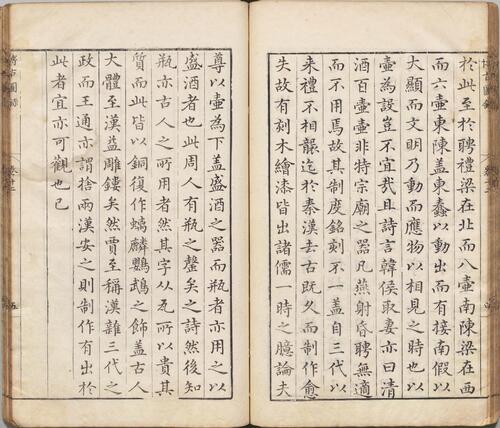 於此至於聘禮梁在北而八壺南陳梁在西
而六壺東陳蓋東蠢以動出而有接南假以
大顯而文明乃動而應物以相見之時也以
壺為設豈不宜哉且詩言韓侯取妻亦曰清
酒百壺壺非特宗廟之器凡燕射昏聘無適
而不用焉故其制度銘刻不一蓋自三代以
來禮不相襲迄於秦漢去古既久而制作愈
失故有刻木繪漆皆出諸儒一時之臆論夫
尊以壺為下蓋盛酒之器而瓶者亦用之以
盛酒者也此周人有瓶之罄矣之詩然後知
瓶亦古人之所用者然其字从瓦所以貴其
質而此皆以銅復作螭麟鸚鵡之飾蓋古人
大體至漢益雕鏤矣然賈至稱漢雜三代之
政而王通亦謂捨兩漢安之則制作有出於
此者宜亦可觀也已
博古圖錄
五